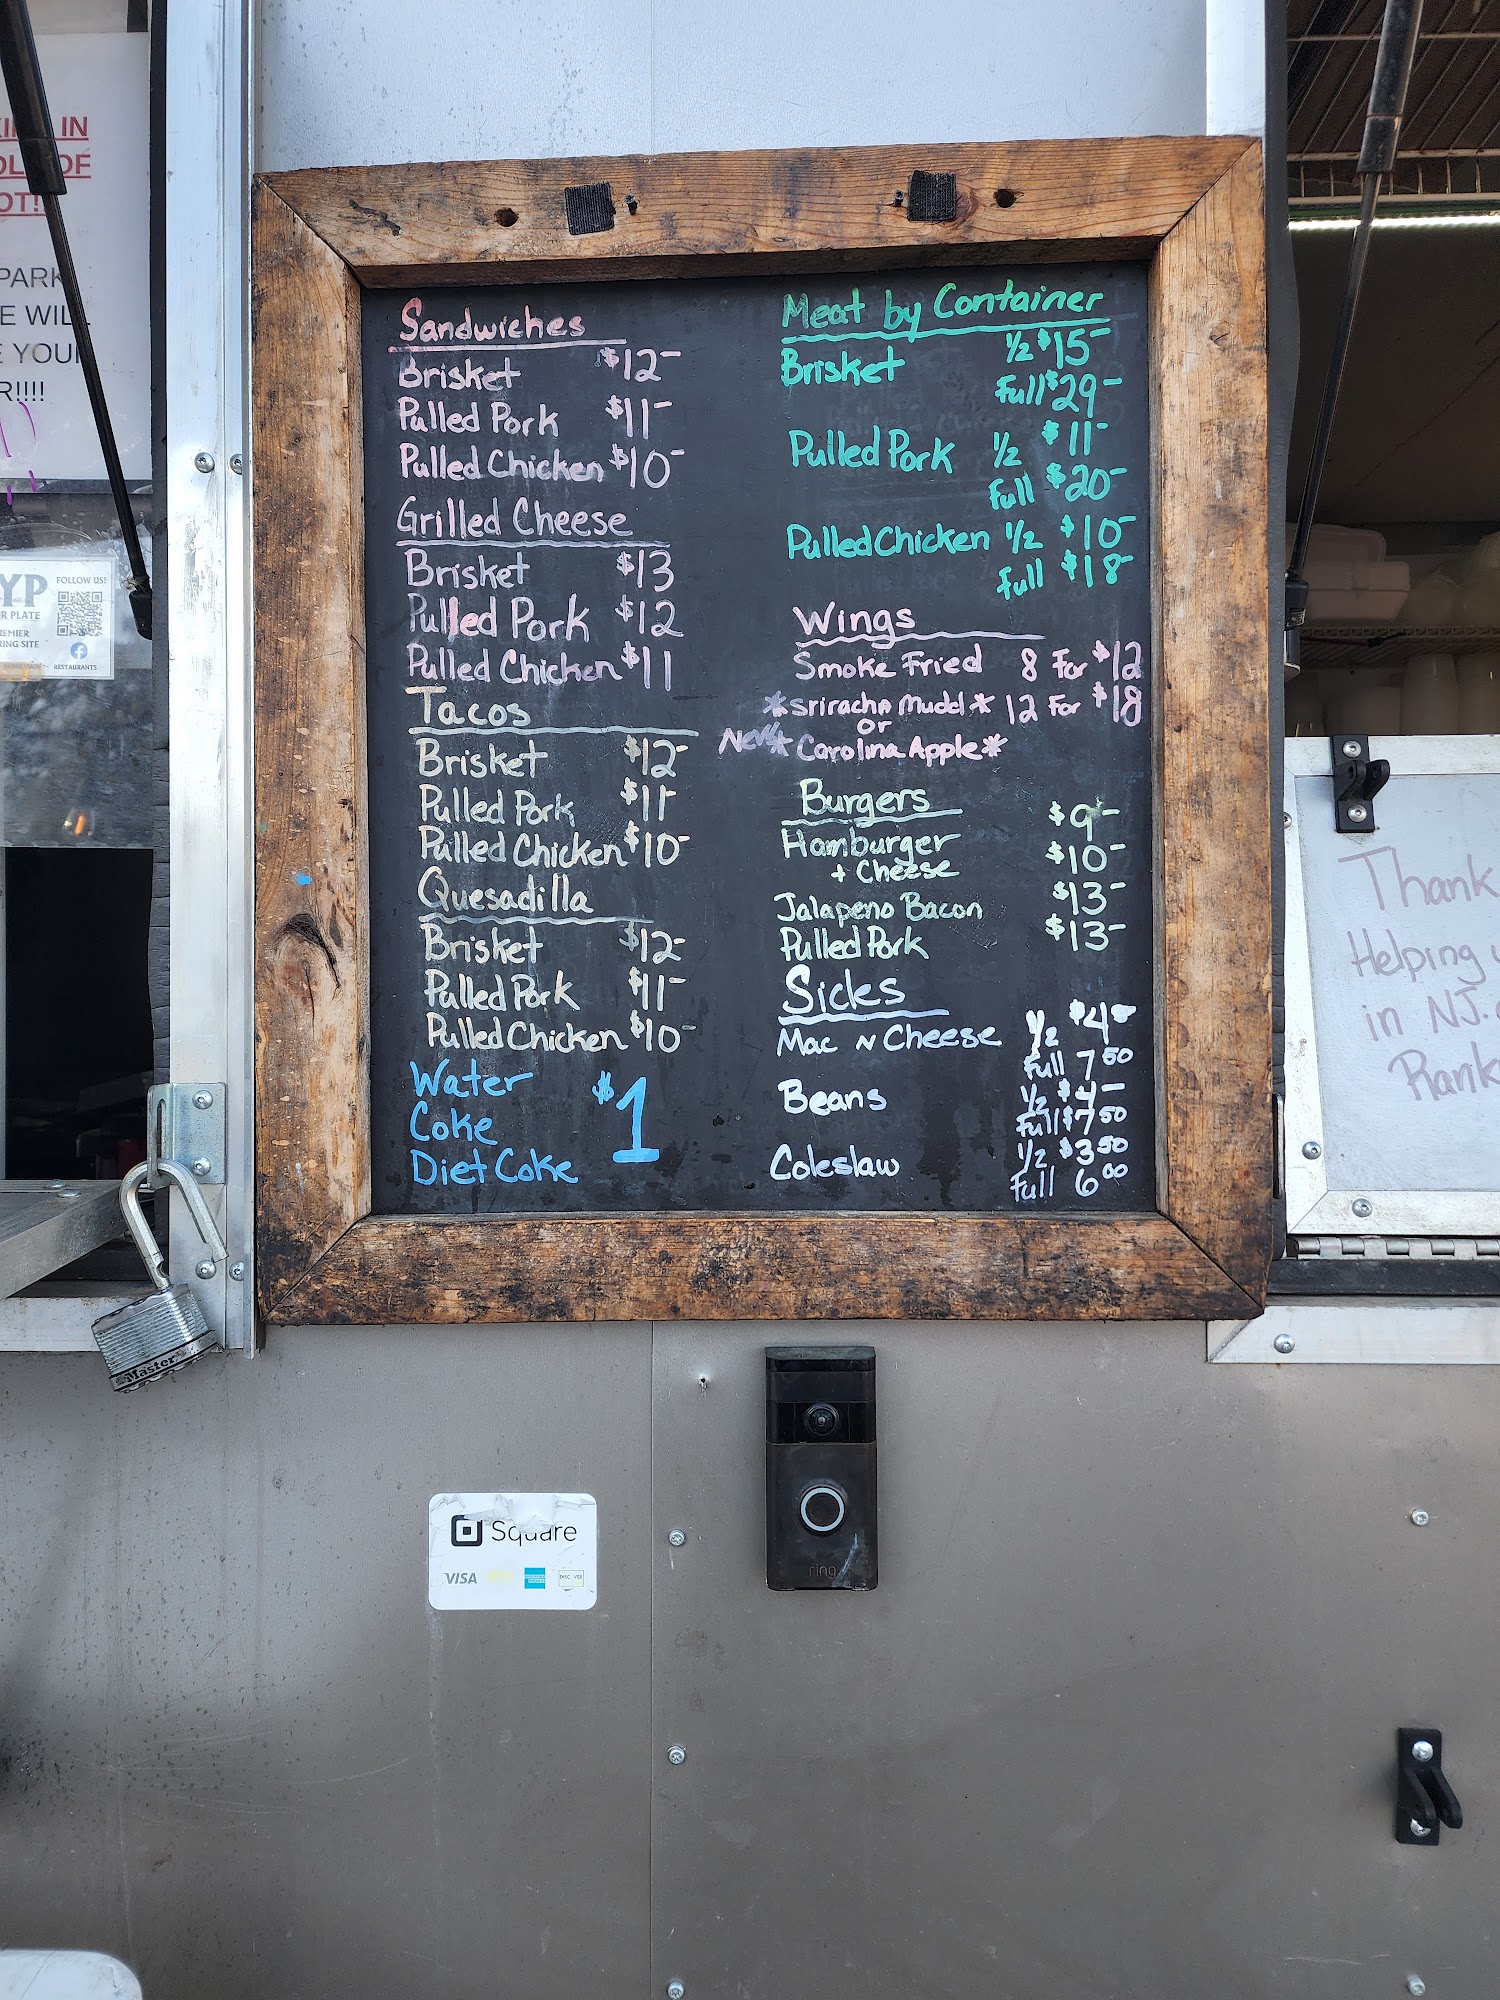 IN
OF
OT!
PARK
E WILL
E YOUR
R!!!!
YP
R PLATE
REMIER
RING SITE
FOLLOW US!
RESTAURANTS
Sandwiches
Brisket $12-
Pulled Pork $11-
Pulled Chicken $10-
Grilled Cheese
Brisket $13
Pulled Pork $12
Pulled Chicken $11
Tacos
Brisket $12-
Pulled Pork $11-
Pulled Chicken $10-
Quesadilla
Brisket $12-
Pulled Pork $11-
Pulled Chicken $10-
Water
Coke $1
Diet Coke
Meat by Container
Brisket 1/2 $15-
Full $29-
Pulled Pork 1/2 $11-
Full $20-
Pulled Chicken 1/2 $10-
Full $18-
Wings
Smoke Fried 8 For $12
*sriracha Mudd* 12 For $18
or
New * Carolina Apple*
Burgers
Hamburger $9-
+ Cheese $10-
Jalapeno Bacon $13-
Pulled Pork $13-
Sides
Mac N Cheese 1/2 $4-
Full 7 50
Beans 1/2 $4-
Full $7 50
Coleslaw 1/2 $3 50
Full 6 00
Thank
Helping
in NJ.
Rank
Master
Square
VISA
DISCOVER
ring